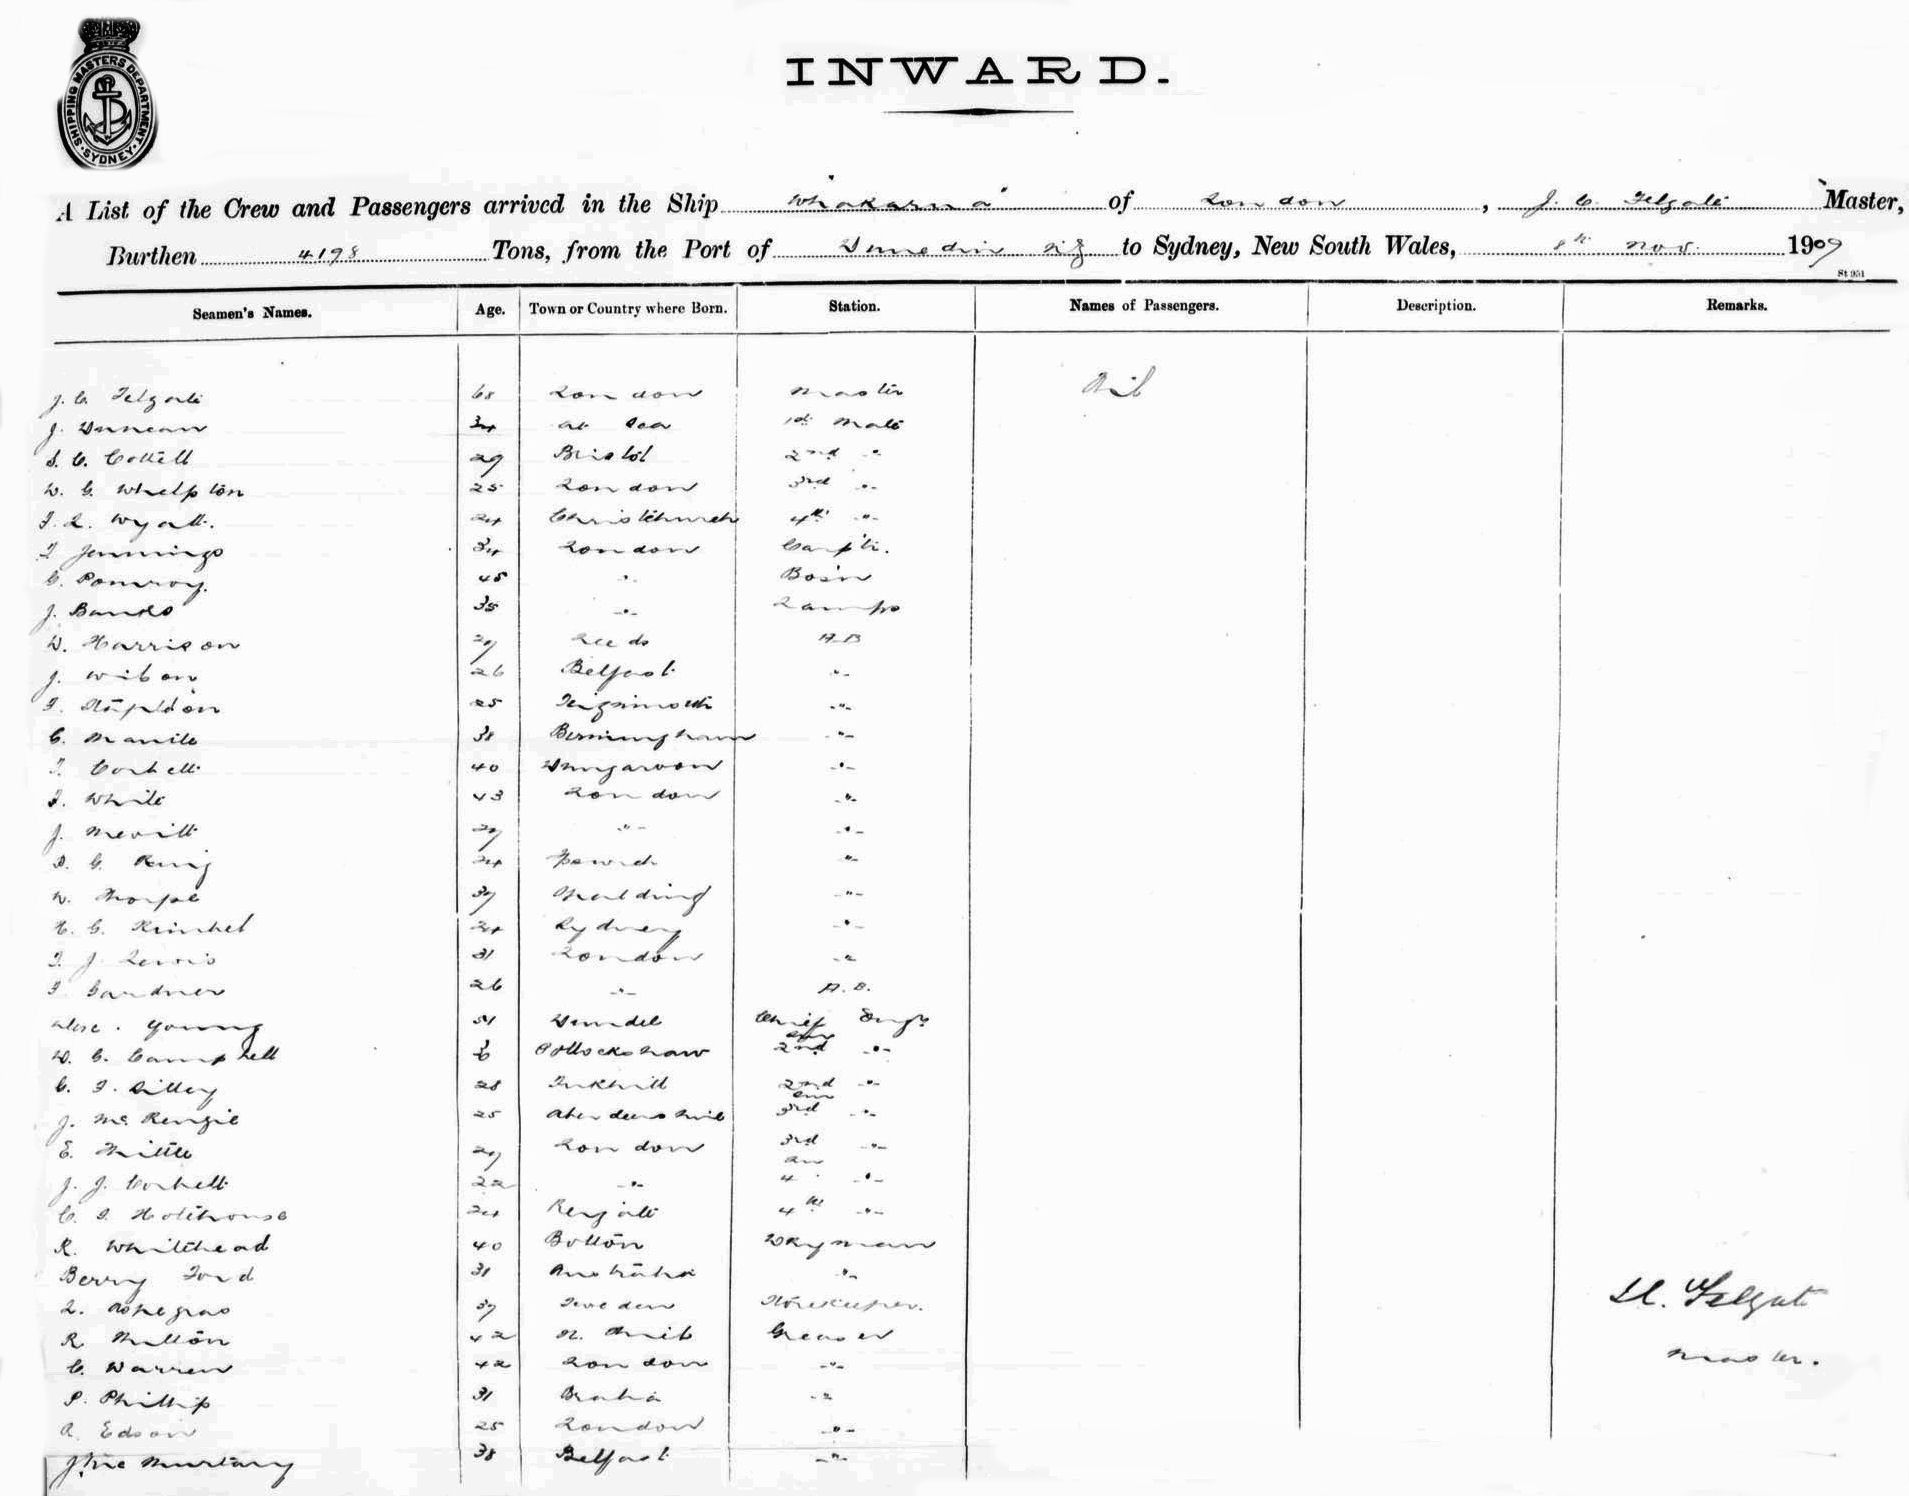 SHIPPING MASTERS DEPARTMENT. SYDNEY.
INWARD.
A List of the Crew and Passengers arrived in the Ship "Whakarua" of London, J. C. Felgate Master,
Burthen 4198 Tons, from the Port of Dunedin NZ to Sydney, New South Wales, 8th Nov. 1909
St 951
Seamen's Names. Age. Town or Country where Born. Station. Names of Passengers. Description. Remarks.
J. C. Felgate 68 London Master Nil
J. Duncan 34 at Sea 1st Mate
S. C. Cottell 29 Bristol 2nd -"-
W. G. Whelpton 25 London 3rd -"-
F. L. Wyatt. 24 Christchurch 4th -"-
F Jennings 34 London Carptr.
C. Pomroy. 45 -"- Bosn
J. Banks 35 -"- Lamps
W. Harrison 29 Leeds A-B
J. Wilson 26 Belfast -"-
25 Teignmouth -"-
C. 38 Birmingham -"-
T. Corbett 40 Dungarvon -"-
F. White 43 London -"-
J. 29 -"- -"-
G. King 24 Ipswich -"-
W. Thorpe 37 -"-
H. G. 24 Sydney -"-
T. J. Lewis 31 London -"-
F. Gardner 26 -"- A.B.
Alex. Young 51 Dundee Chief Engr
W. C. Campbell 36 Pollockshaw 2nd -"-
C. F. Silley 28 2nd -"-
J. McKenzie 25 Aberdeenshire 3rd -"-
E. 29 London 3rd -"-
J. J. Corbett 22 -"- 4 -"-
C. F. Holthouse 24 Reigate 4th -"-
R. Whitehead 40 Bolton Dkyman
Berry Ford 31 Australia -"-
L. 37 Sweden Storekeeper. Felgate
R. Milton 42 Greaser
C. Warren 42 London -"- Master.
P. Phillip 31 -"-
A. Edson 25 London -"-
J. McMurtary 38 Belfast -"-